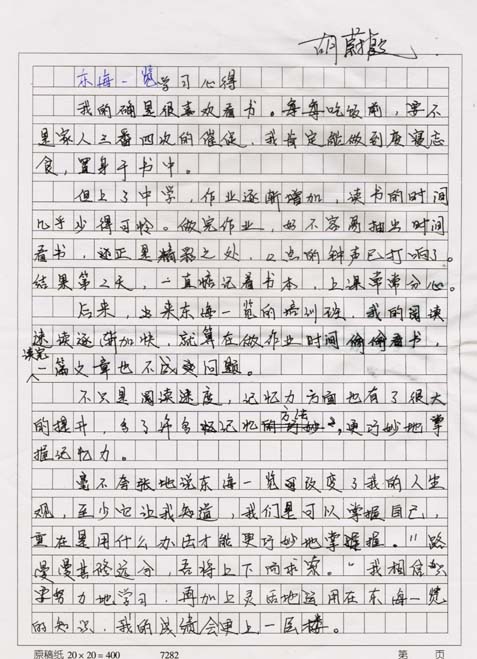 胡蔚殷
东海一览学习心得
我的确是很喜欢看书。每每吃饭前，要不
是家人三番四次的催促，我肯定能做到废寝忘
食，置身于书中。
但上了中学，作业逐渐增加，读书的时间
几乎少得可怜。做完作业，好不容易抽出时间
看书，还正是精彩之处，口点的钟声已打响了。
结果第二天，一直惦记着书本，上课常常分心。
后来，出来东海一览的培训班，我的阅读
速读逐渐加快，就算在做作业时间偷偷看书，
读完一篇文章也不成问题。
不只是阅读速度，记忆力方面也有了很大
的提升，多了许多记忆的方法，更巧妙地掌
握记忆力。
毫不夸张地说东海一览可改变了我的人生
观，至少它让我知道，我们是可以掌握自己，
重在是用什么办法才能更巧妙地掌握。"路
漫漫其修远兮，吾将上下而求索。"我相信只
要努力地学习，再加上灵活地运用在东海一览
的知识，我的成绩会更上一层楼。
原稿纸 20×20=400 7282 第 页